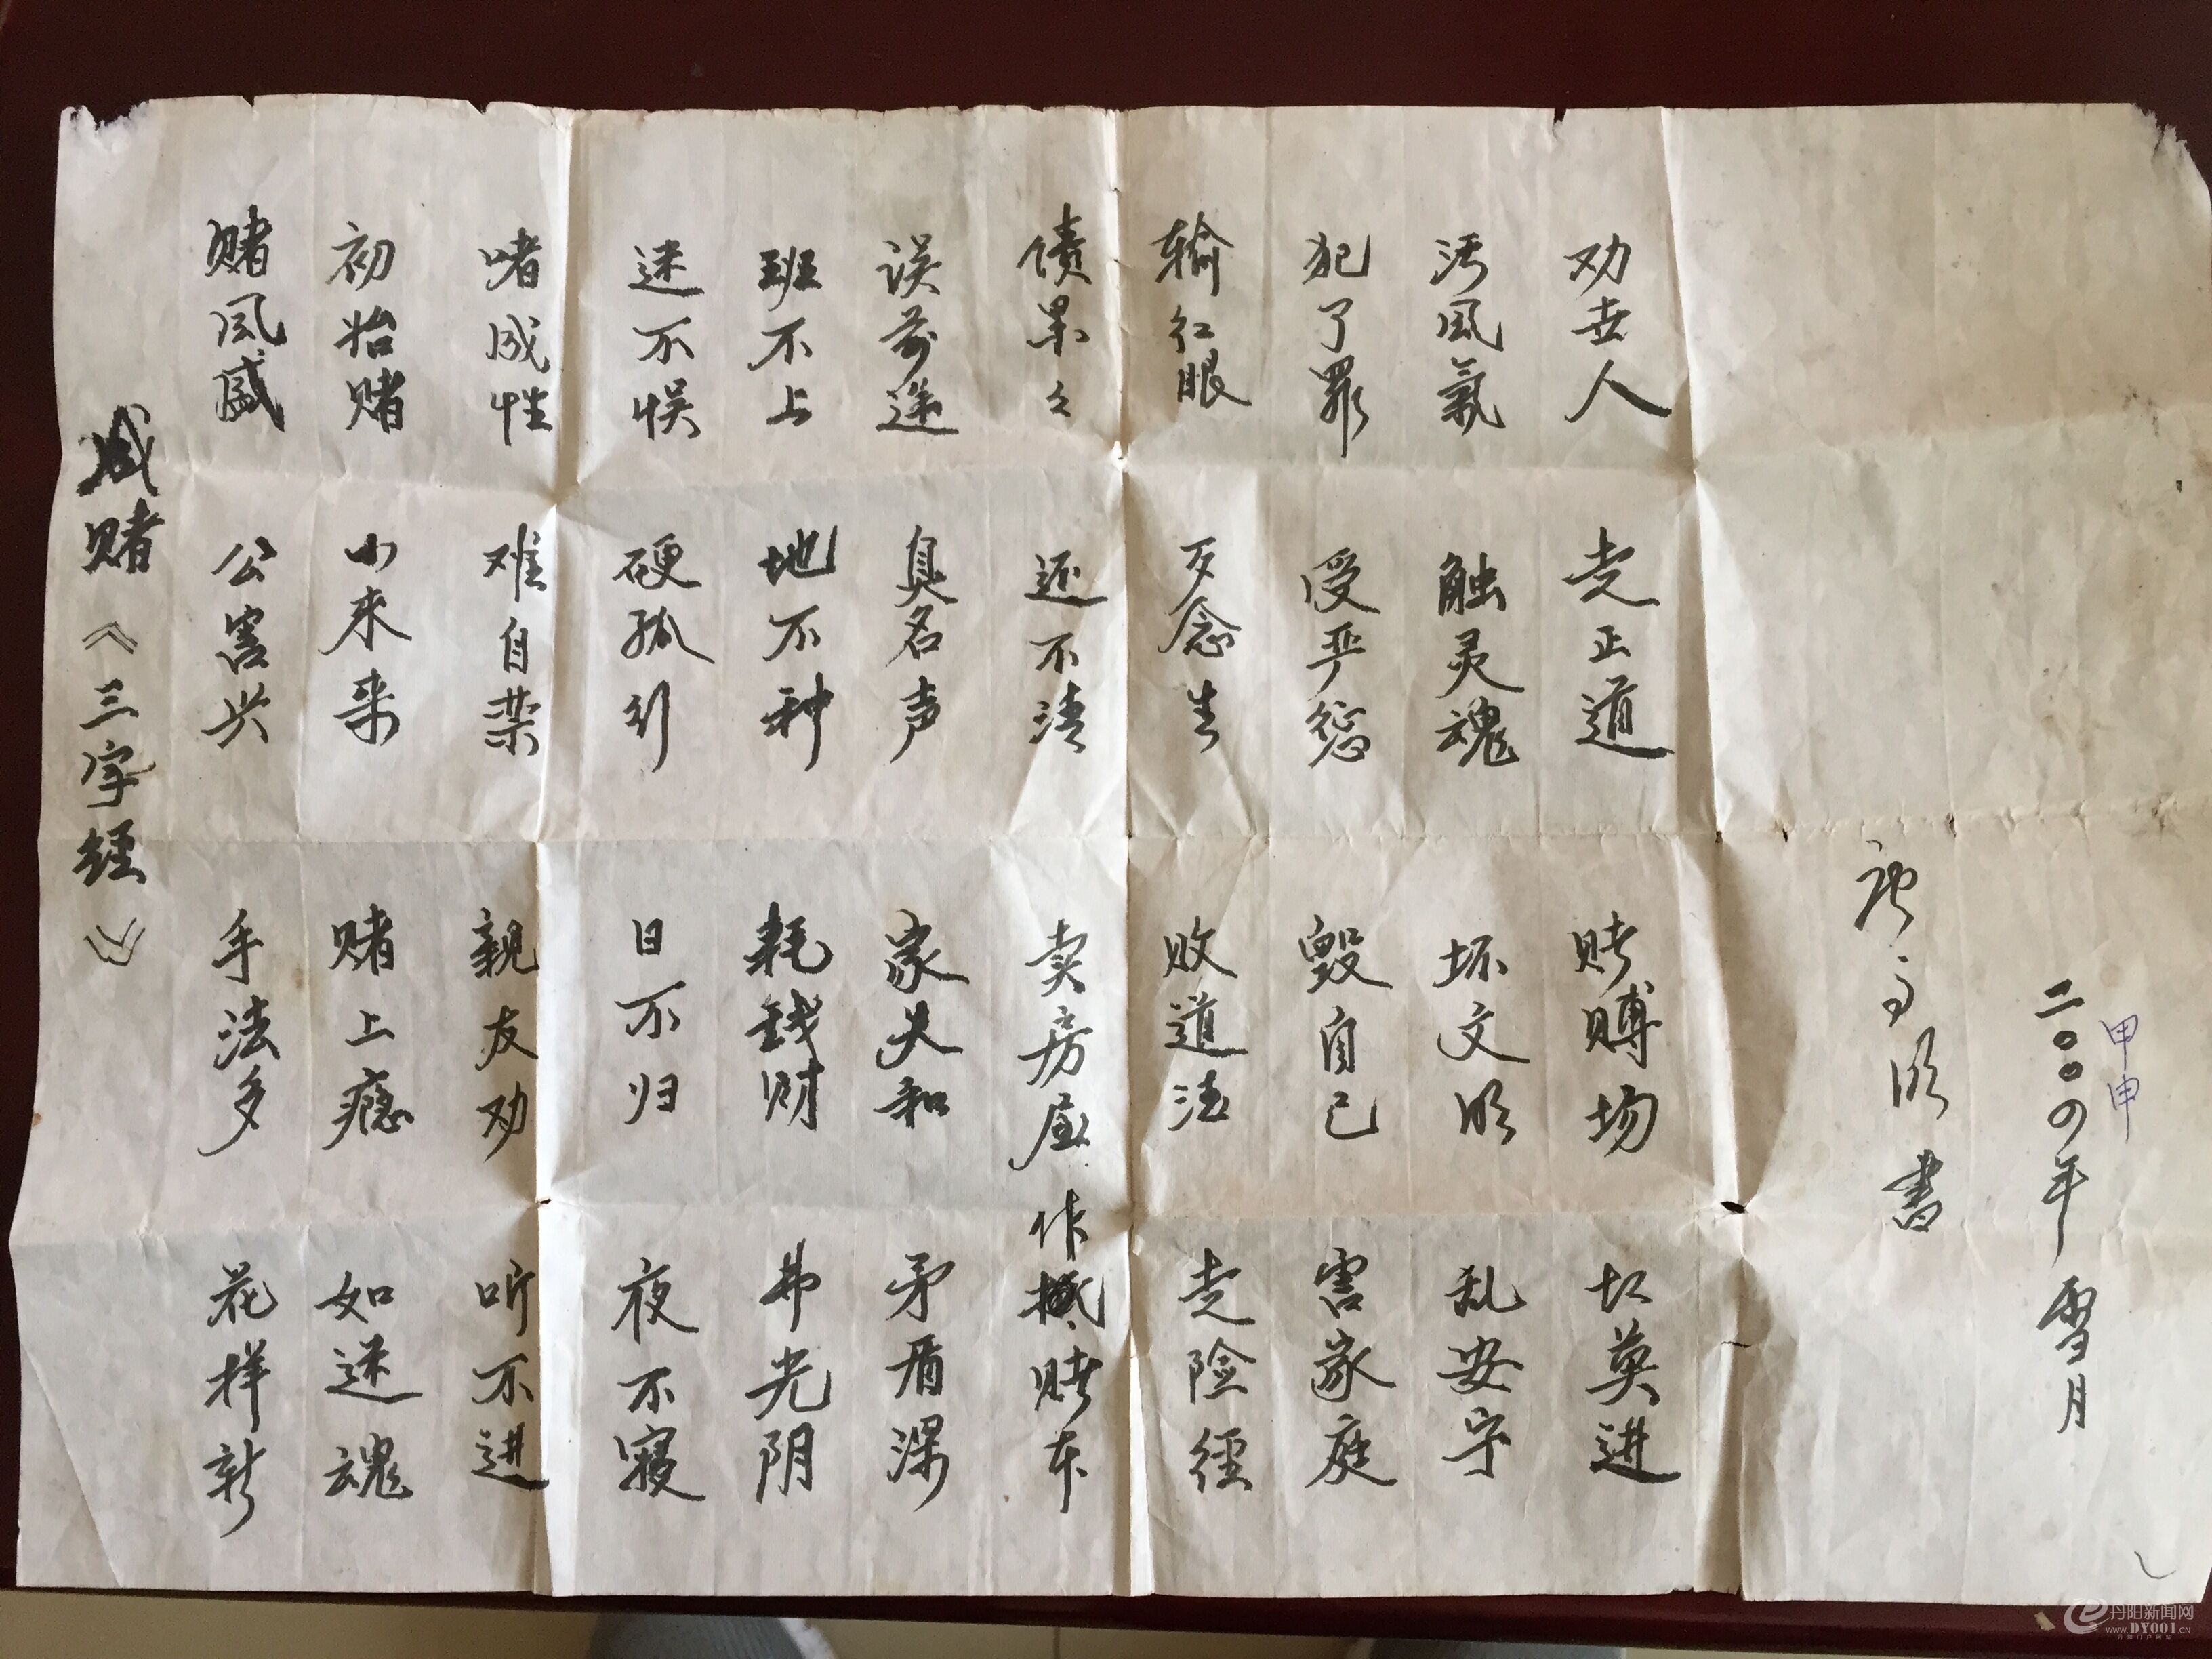 戒赌《三字经》
赌风盛 公害兴 手法多 花样新
初始赌 小来来 赌上瘾 如迷魂
啫成性 难自禁 亲友劝 听不进
迷不悮 硬孤行 日不归 夜不寝
班不上 地不种 耗钱财 弃光阴
误前途 臭名声 家失和 矛盾深
债累々 还不清 卖房屋 作赌本
输红眼 歹念生 败道法 走险径
犯了罪 受严惩 毁自己 害家庭
污风氣 触灵魂 坏文明 乱安宁
劝世人 走正道 赌赙场 切莫进
明書
二〇〇四年 雪月
甲申
丹阳新闻网
WWW.DY001.CN